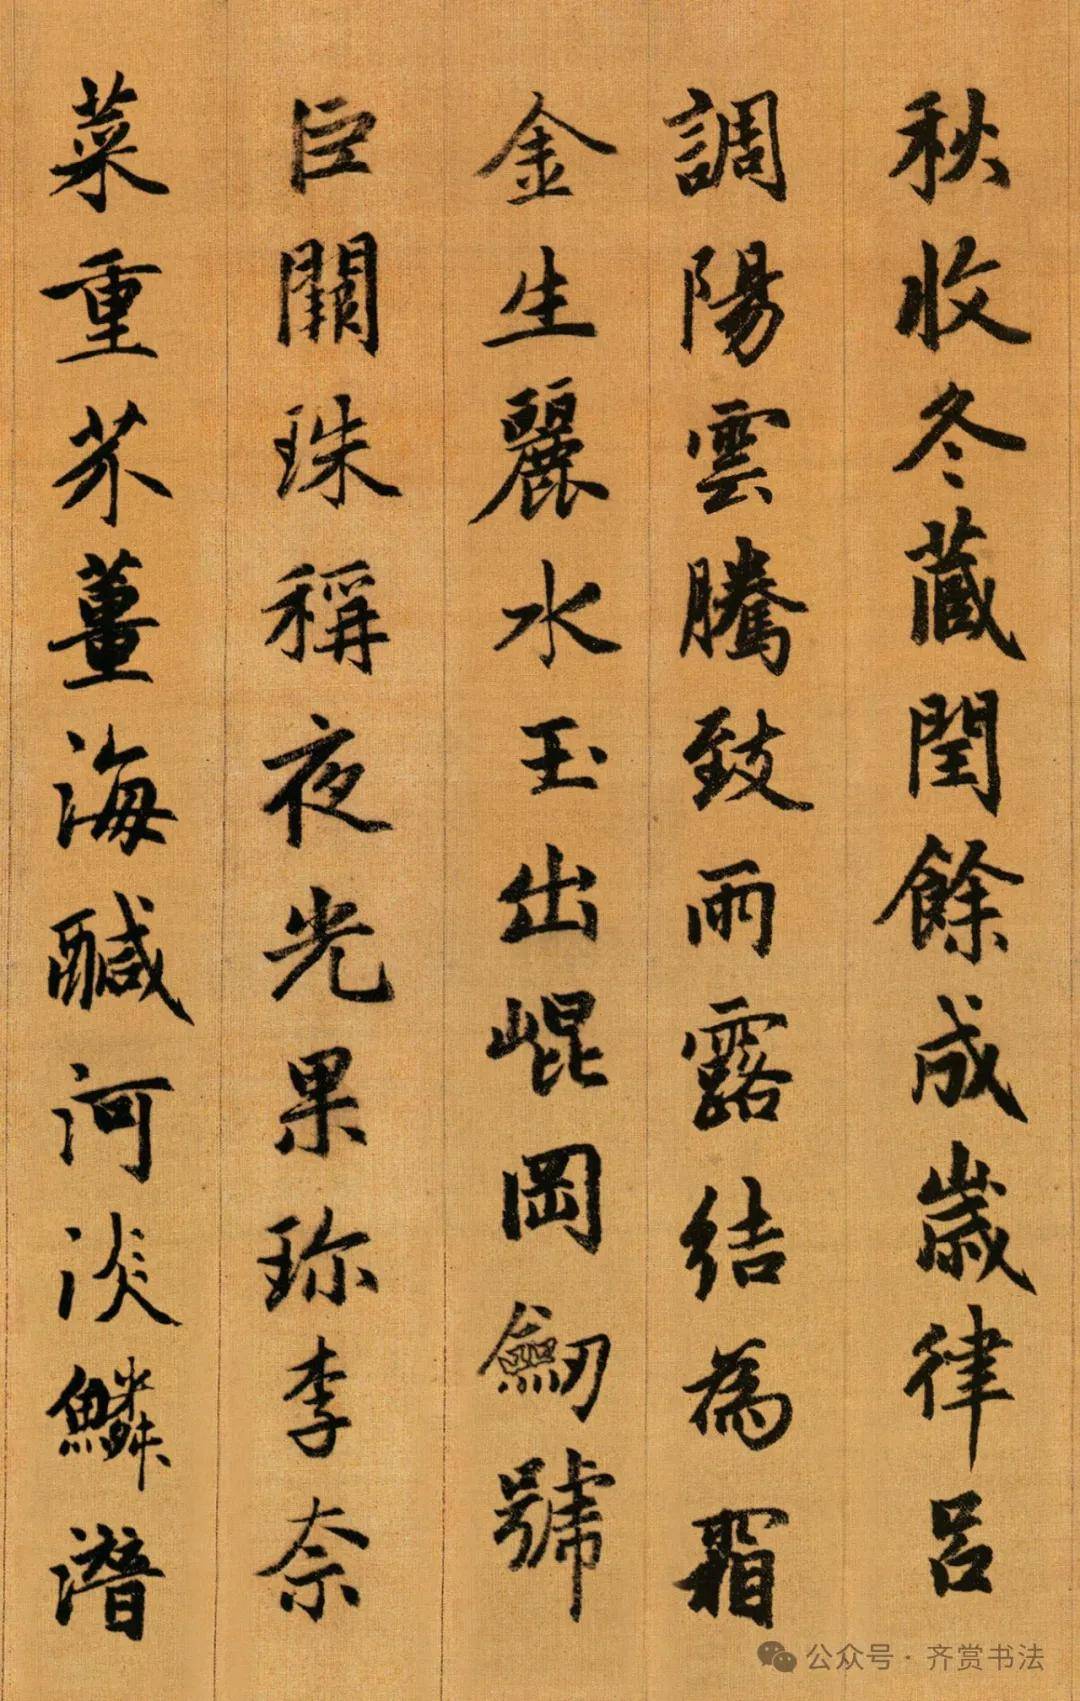 秋收冬藏閏餘成歲律呂
調陽雲騰致雨露結為霜
金生麗水玉出崐岡劒號
巨闕珠稱夜光果珎李柰
菜重芥薑海鹹河淡鱗潛
公众号·齐赏书法